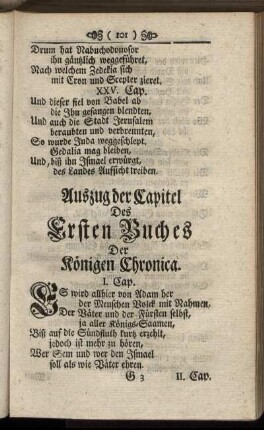 ( 101 )
Drum hat Nabuchodonosor
ihn gäntzlich weggeführet,
Nach welchem Zedekia sich
mit Cron und Scepter zieret.
XXV. Cap.
Und dieser fiel von Babel ab
die Ihn gefangen blendten,
Und auch die Stadt Jerusalem
beraubten und verbrennten,
So wurde Juda weggeschlept,
Gedalia mag bleiben,
Und, biß ihn Ismael erwürgt,
des Landes Aufsicht treiben.
Auszug der Capitel
Des
Ersten Buches
Der
Königen Chronica.
I. Cap.
ES wird allhier von Adam her
der Menschen Volck mit Nahmen,
Der Väter und der Fürsten selbst,
ja aller Königs-Saamen,
Biß auf die Sündfluth kurtz erzehlt,
jedoch ist mehr zu hören,
Wer Sem und wer den Ismael
soll als wie Väter ehren.
G 3 II. Cap.